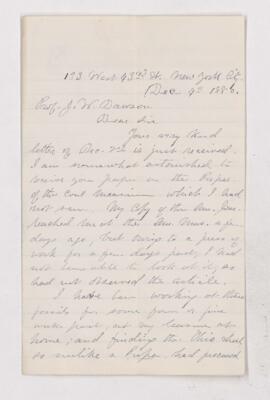 193 West 43rd St. New York City
Dec 9th 188
Prof. J. W. Dawson
Dear Sir
Your very kind
letter of Dec. 2nd is just received.
I am somewhat astonished to
receive your paper on the
of the Coal measures which I had
not seen. My copy of the Am. Jour.
reached me at the a few
days ago, but owing to a press of
work for a few days past, I had
not been able to look at it, so
had not observed the article.
I have been working at these
fossils for some four or five
weeks past, at my leisure at
home; and finding the Ohio shell
so unlike a Pupa had